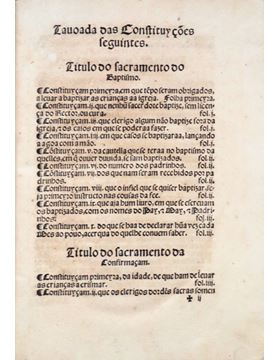 Tauoada das Constituyções
seguintes.
Titulo do sacramento do
Baptismo.
Constituyçam primeyra, em que tẽpo seram obrigados,
a leuar a baptizar as crianças aa igreja. Folha primeyra.
Constituyçam .ij. que nenhũ sacerdote baptize, sem licença
do Rector, ou cura. fol. j.
Constituyçam .iij. que clerigo algum não baptize fora da
igreja, & os casos em que se podera a fazer. fol. j.
Constituyçam .iiij. em que casos se baptizaraa, lançando
a agoa com a mão. fol. j.
Constituyçam .v. da cautella que se tera no baptismo da
quelles, em q̃ ouuer duuida, se sam baptizados. fol. ij.
Constituyçam .vi. do numero dos padrinhos. fol. ij.
Constituyçam .vij. dos que nam seram recebidos por pa
drinhos. fol. ij.
Constituyçam .viij. que o infiel que se quiser baptizar se
ja primeyro instructo nas cousas da fee. fol. ij.
Constituyçam .ix. que aja hum liuro, em que se escreuam
os baptizados, com os nomes do Pay, & May, & Padri-
nhos. fol. iij.
Constituyçam .x. do que se ha de declarar hũa vez cada
mes ao pouo, acerqua do que lhe conuem saber. fol. iiij.
Titulo do sacramento da
Confirmaçam.
Constituyçam primeyra, da idade, de que ham de leuar
as crianças a crismar. fol. iiij.
Constituyçam .ij. que os clerigos dordẽs sacras
✠ ij